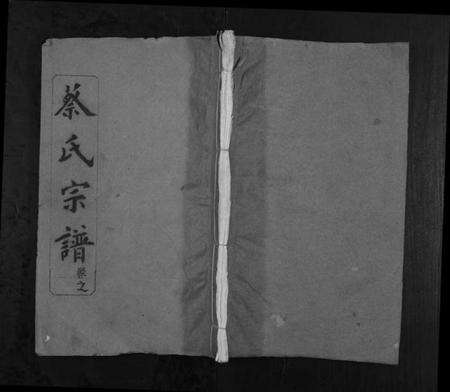 蔡氏宗譜卷之